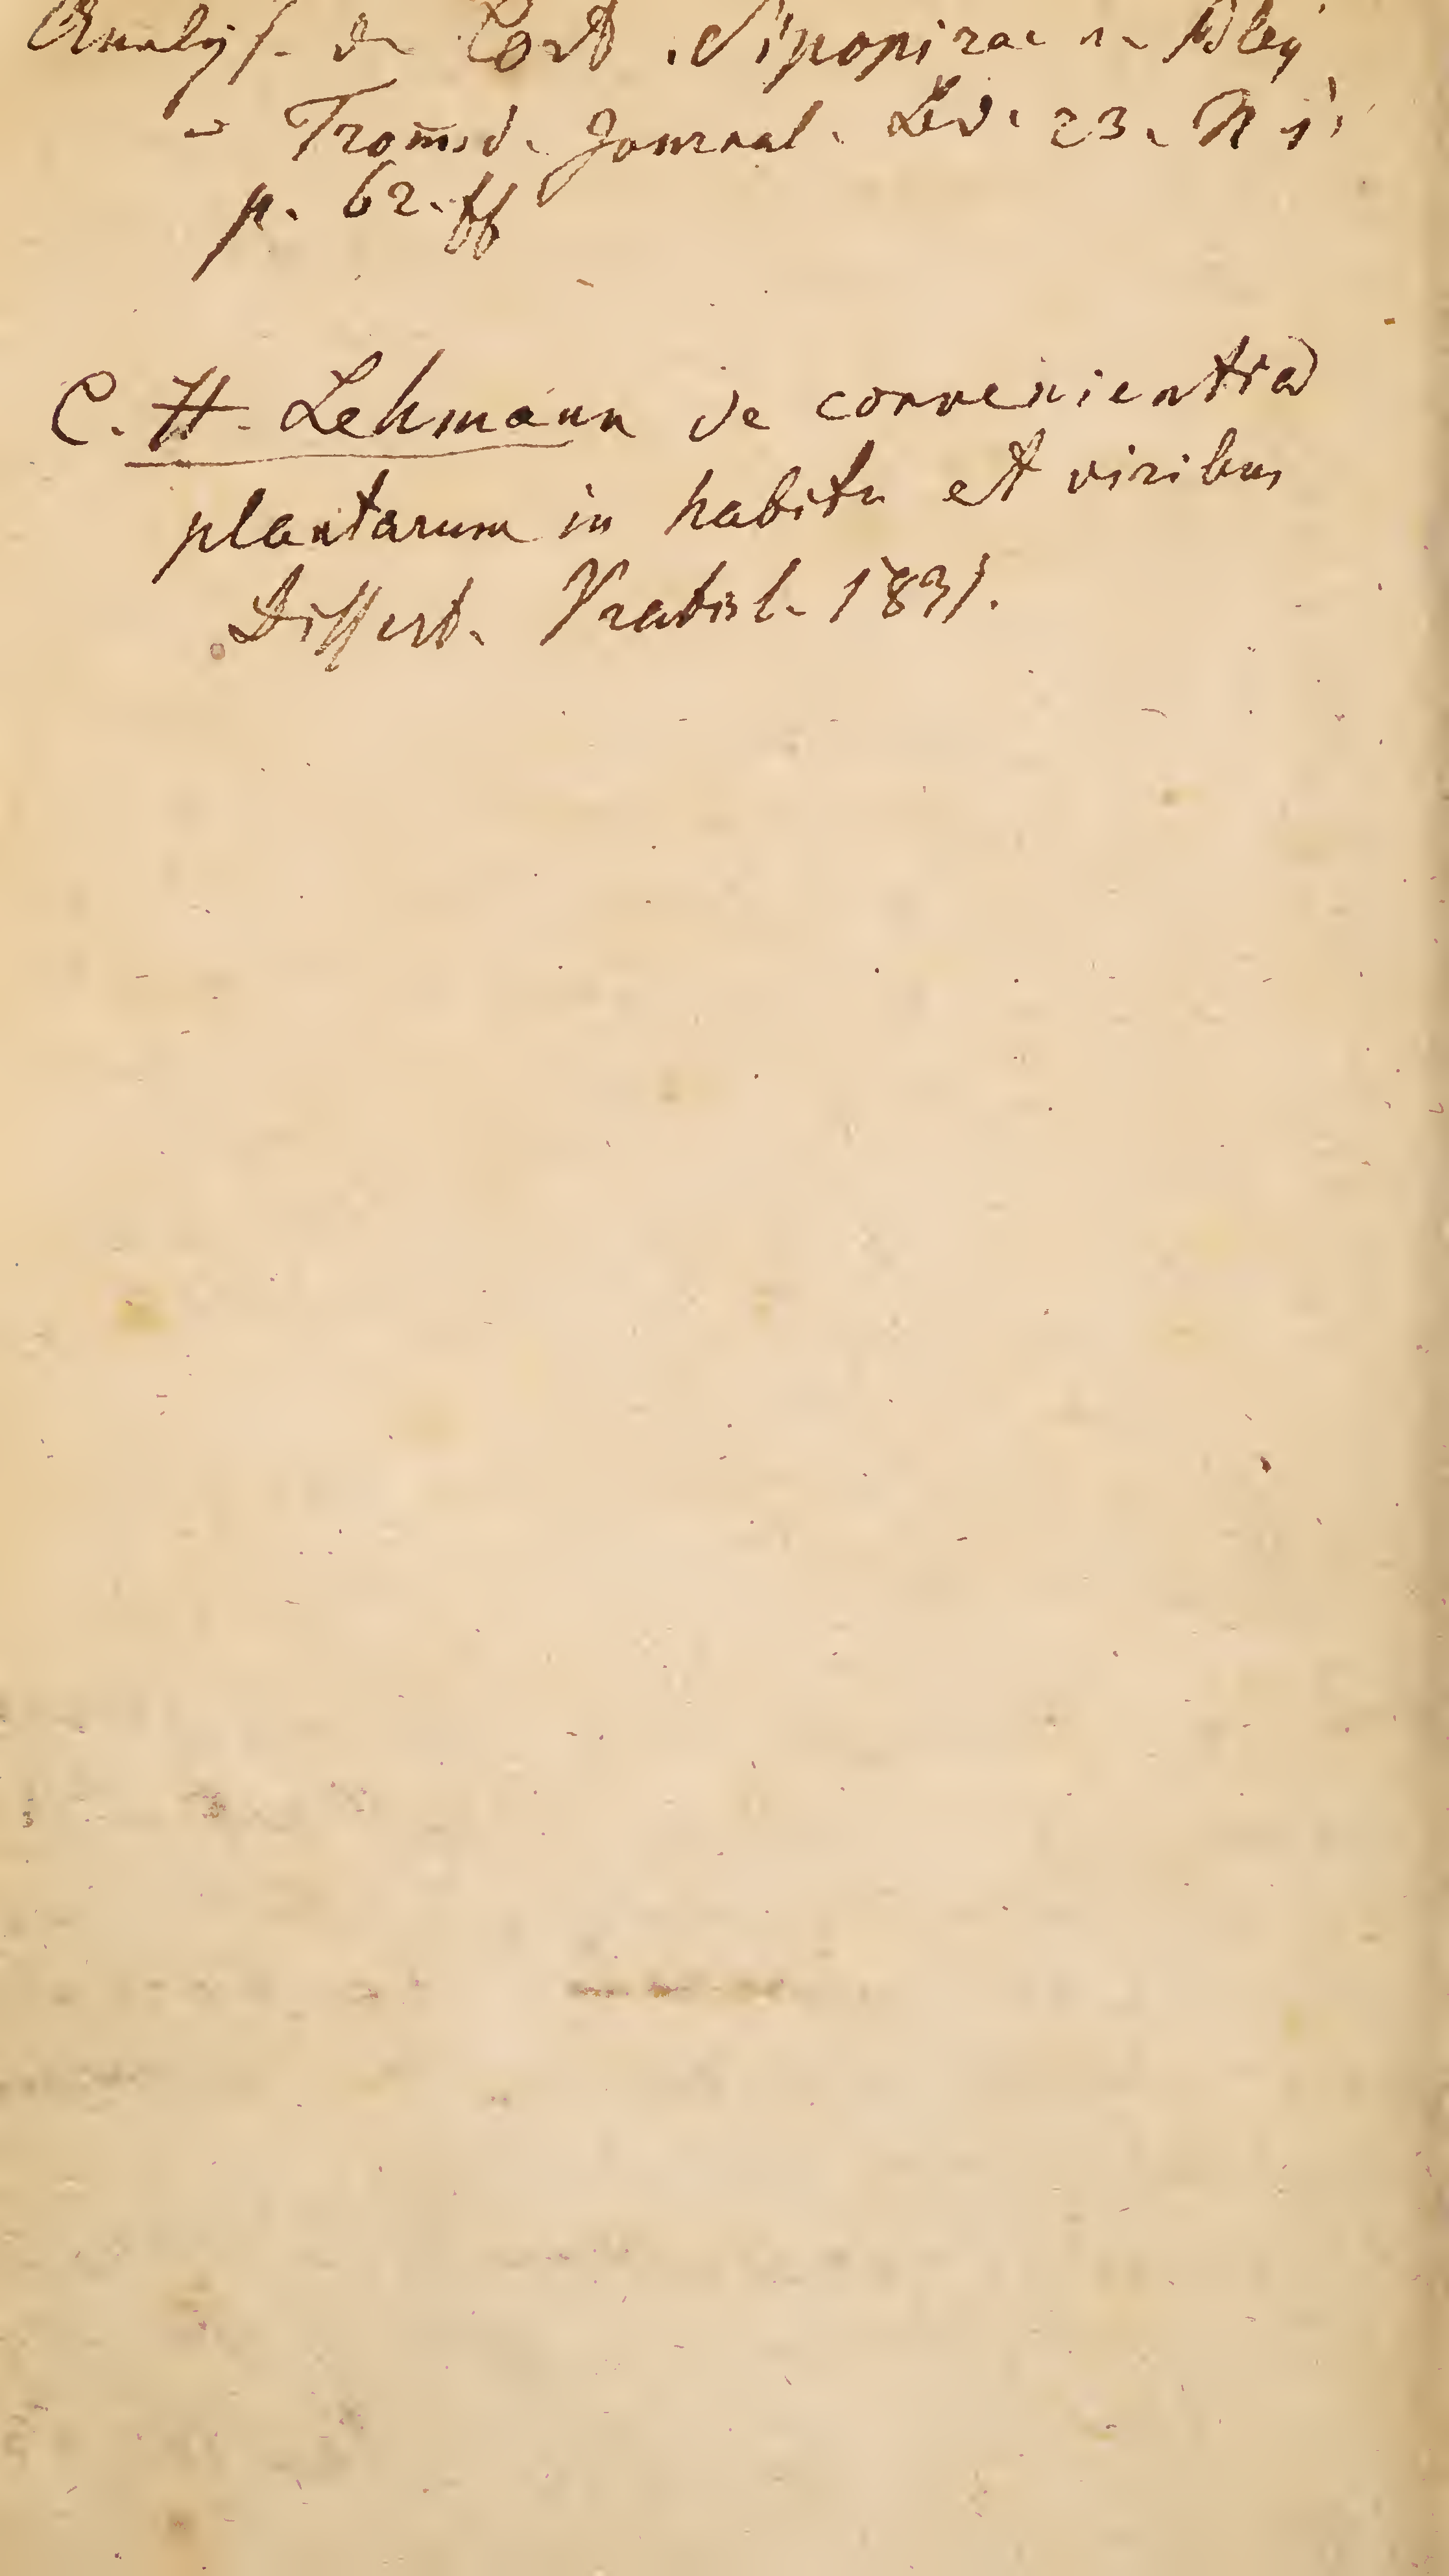 Analyſ. der Cort. Sipopirae v. Bley
in Tromsd. Journal. Bd. 23. N 1.
p. 62. ff
C. H. Lehmann de convenientia
plantarum in habitu et viribus
Diſsert. Vratisl. 1831.